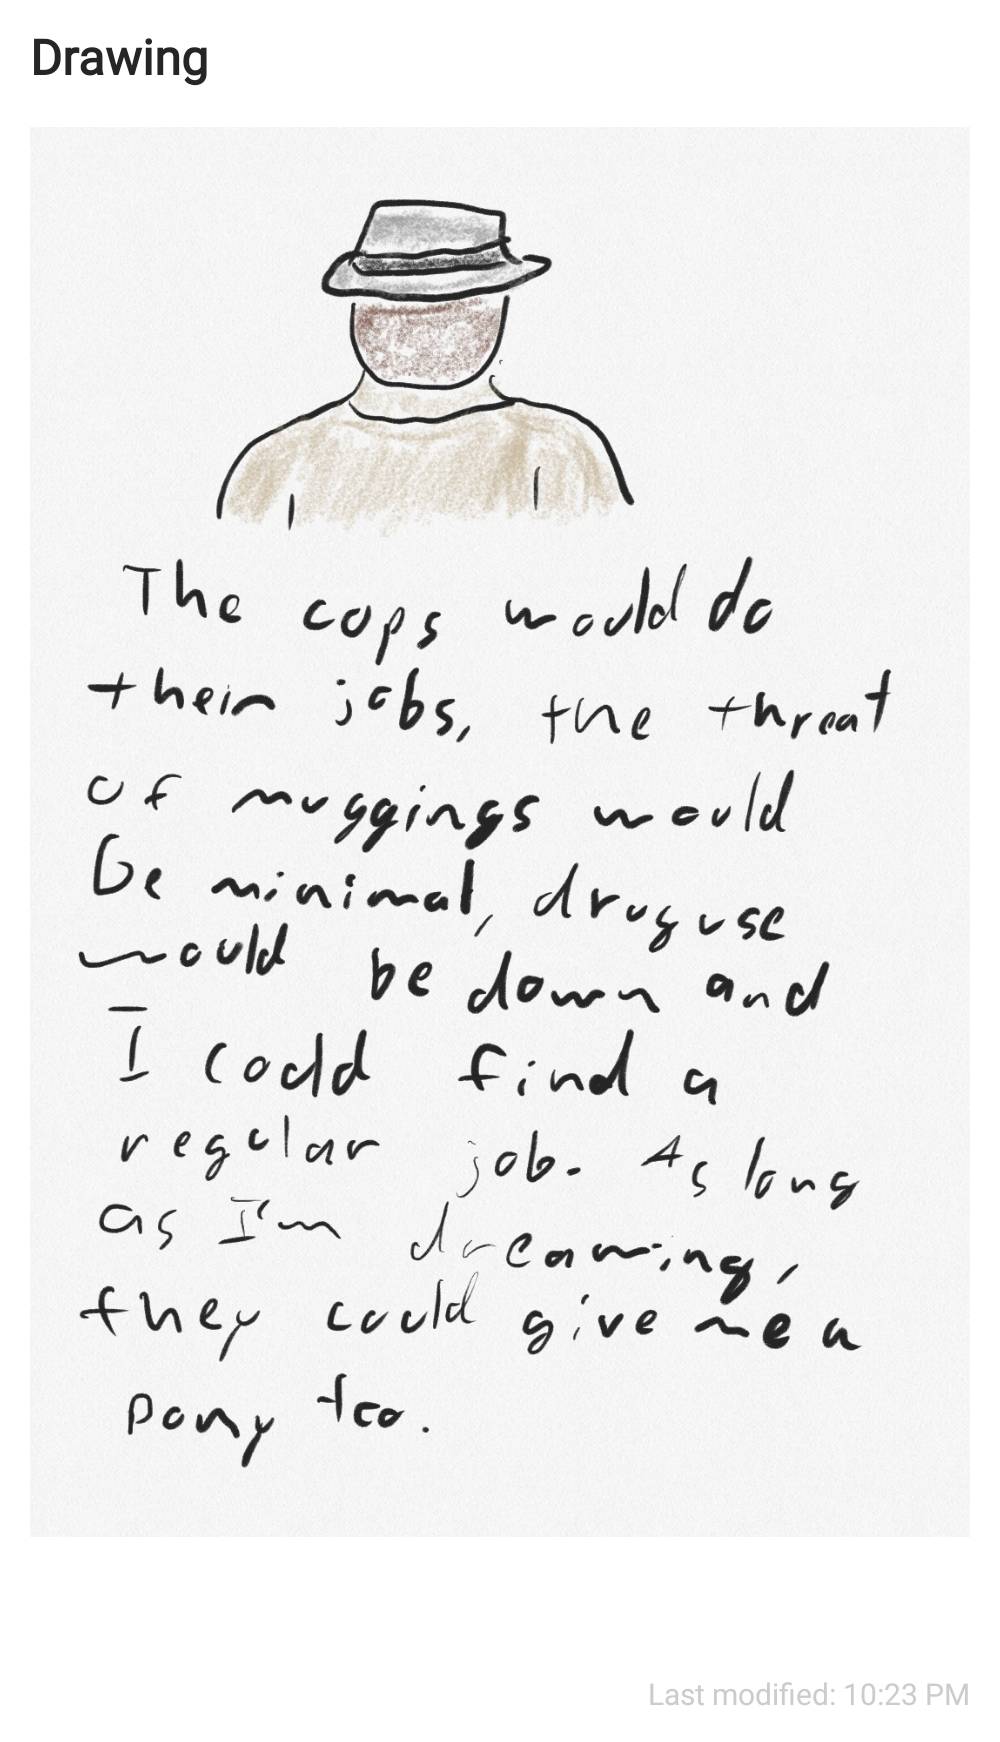 Drawing
The cops would do
their jobs, the threat
of muggings would
be minimal, drug use
would be down and
I could find a
regular job. As long
as I'm dreaming,
they could give me a
pony too.
Last modified: 10:23 PM